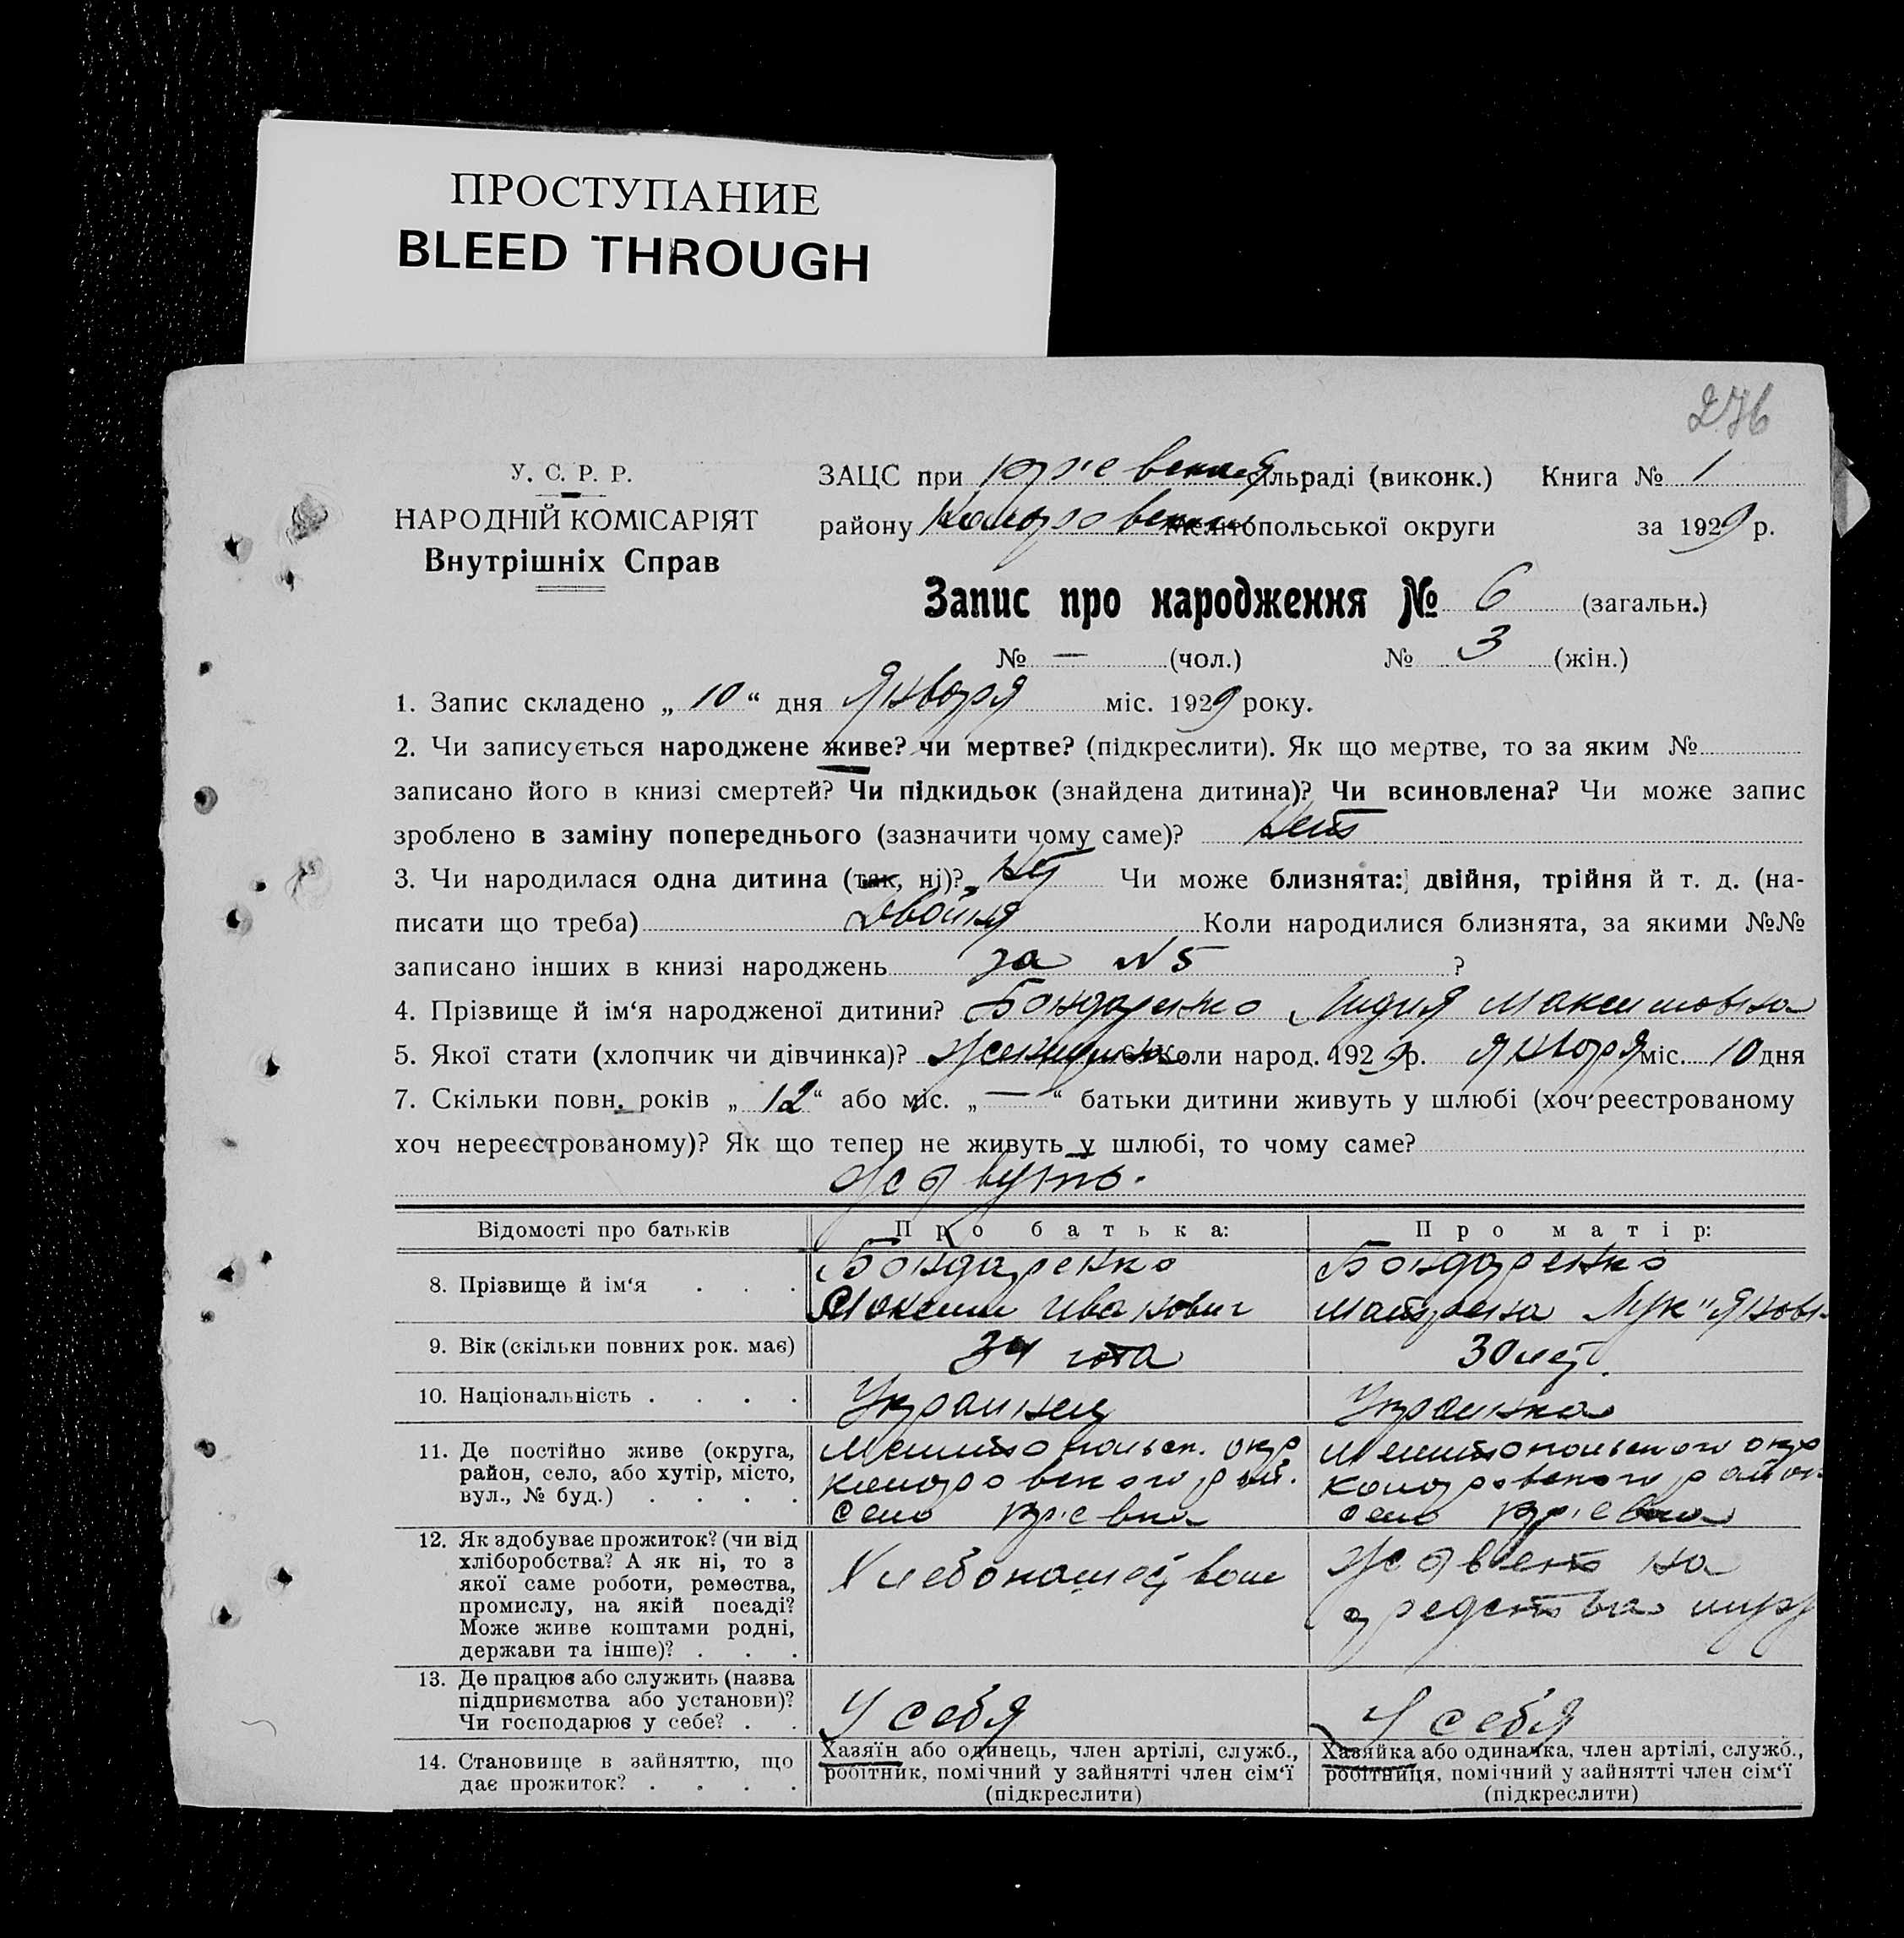 ПРОСТУПАНИЕ
BLEED THROUGH
276
У. С. Р. Р.
НАРОДНІЙ КОМІСАРІЯТ
Внутрішніх Справ
ЗАЦС при Юріевской сільраді (виконк.) Книга № 1
району Мелітопольської округи за 1929 р.
Запис про народження № 6 (загальн.)
№ — (чол.) № 3 (жін.)
1. Запис складено „ 10 “ дня Января міс. 1929 року.
2. Чи записується народжене живе? чи мертве? (підкреслити). Як що мертве, то за яким №
записано його в книзі смертей? Чи підкидьок (знайдена дитина)? Чи всиновлена? Чи може запис
зроблено в заміну попереднього (зазначити чому саме)? Нет
3. Чи народилася одна дитина (так, ні)? Нет Чи може близнята: двійня, трійня й т. д. (на-
писати що треба) Двойня Коли народилися близнята, за якими №№
записано інших в книзі народжень за N 5 ?
4. Прізвище й ім‘я народженої дитини? Бондаренко Лидия Максимовна
5. Якої стати (хлопчик чи дівчинка)? Женщина 6. Коли народ. 1929 р. января міс. 10 дня
7. Скільки повн. років „ 12 “ або міс. „ — “ батьки дитини живуть у шлюбі (хоч реєстрованому
хоч нереєстрованому)? Як що тепер не живуть у шлюбі, то чому саме?
живуть.
Відомості про батьків Про батька: Про матір:
8. Прізвище й ім‘я . . . Бондаренко Максим Иванович Бондаренко Матрена
9. Вік (скільки повних рок. має) 34 года 30 лет
10. Національність . . . . Украинец Украинка
11. Де постійно живе (округа, Мелитопольск. окр Мелитопольского окр
район, село, або хутір, місто,
вул., № буд.) . . . . село Юріевка село Юріевка
12. Як здобуває прожиток? (чи від
хліборобства? А як ні, то з Живет на
якої саме роботи, ремества, Хлебопашеством
промислу, на якій посаді? средства
Може живе коштами родні,
держави та інше)? . . .
13. Де працює або служить (назва
підприємства або установи)? У себя У себя
Чи господарює у себе? . .
14. Становище в зайняттю, що Хазяїн або одинець, член артілі, служб., Хазяйка або одиначка, член артілі, служб.,
дає прожиток? . . . . робітник, помічний у зайнятті член сім‘ї робітниця, помічний у зайнятті член сім‘ї
(підкреслити) (підкреслити)